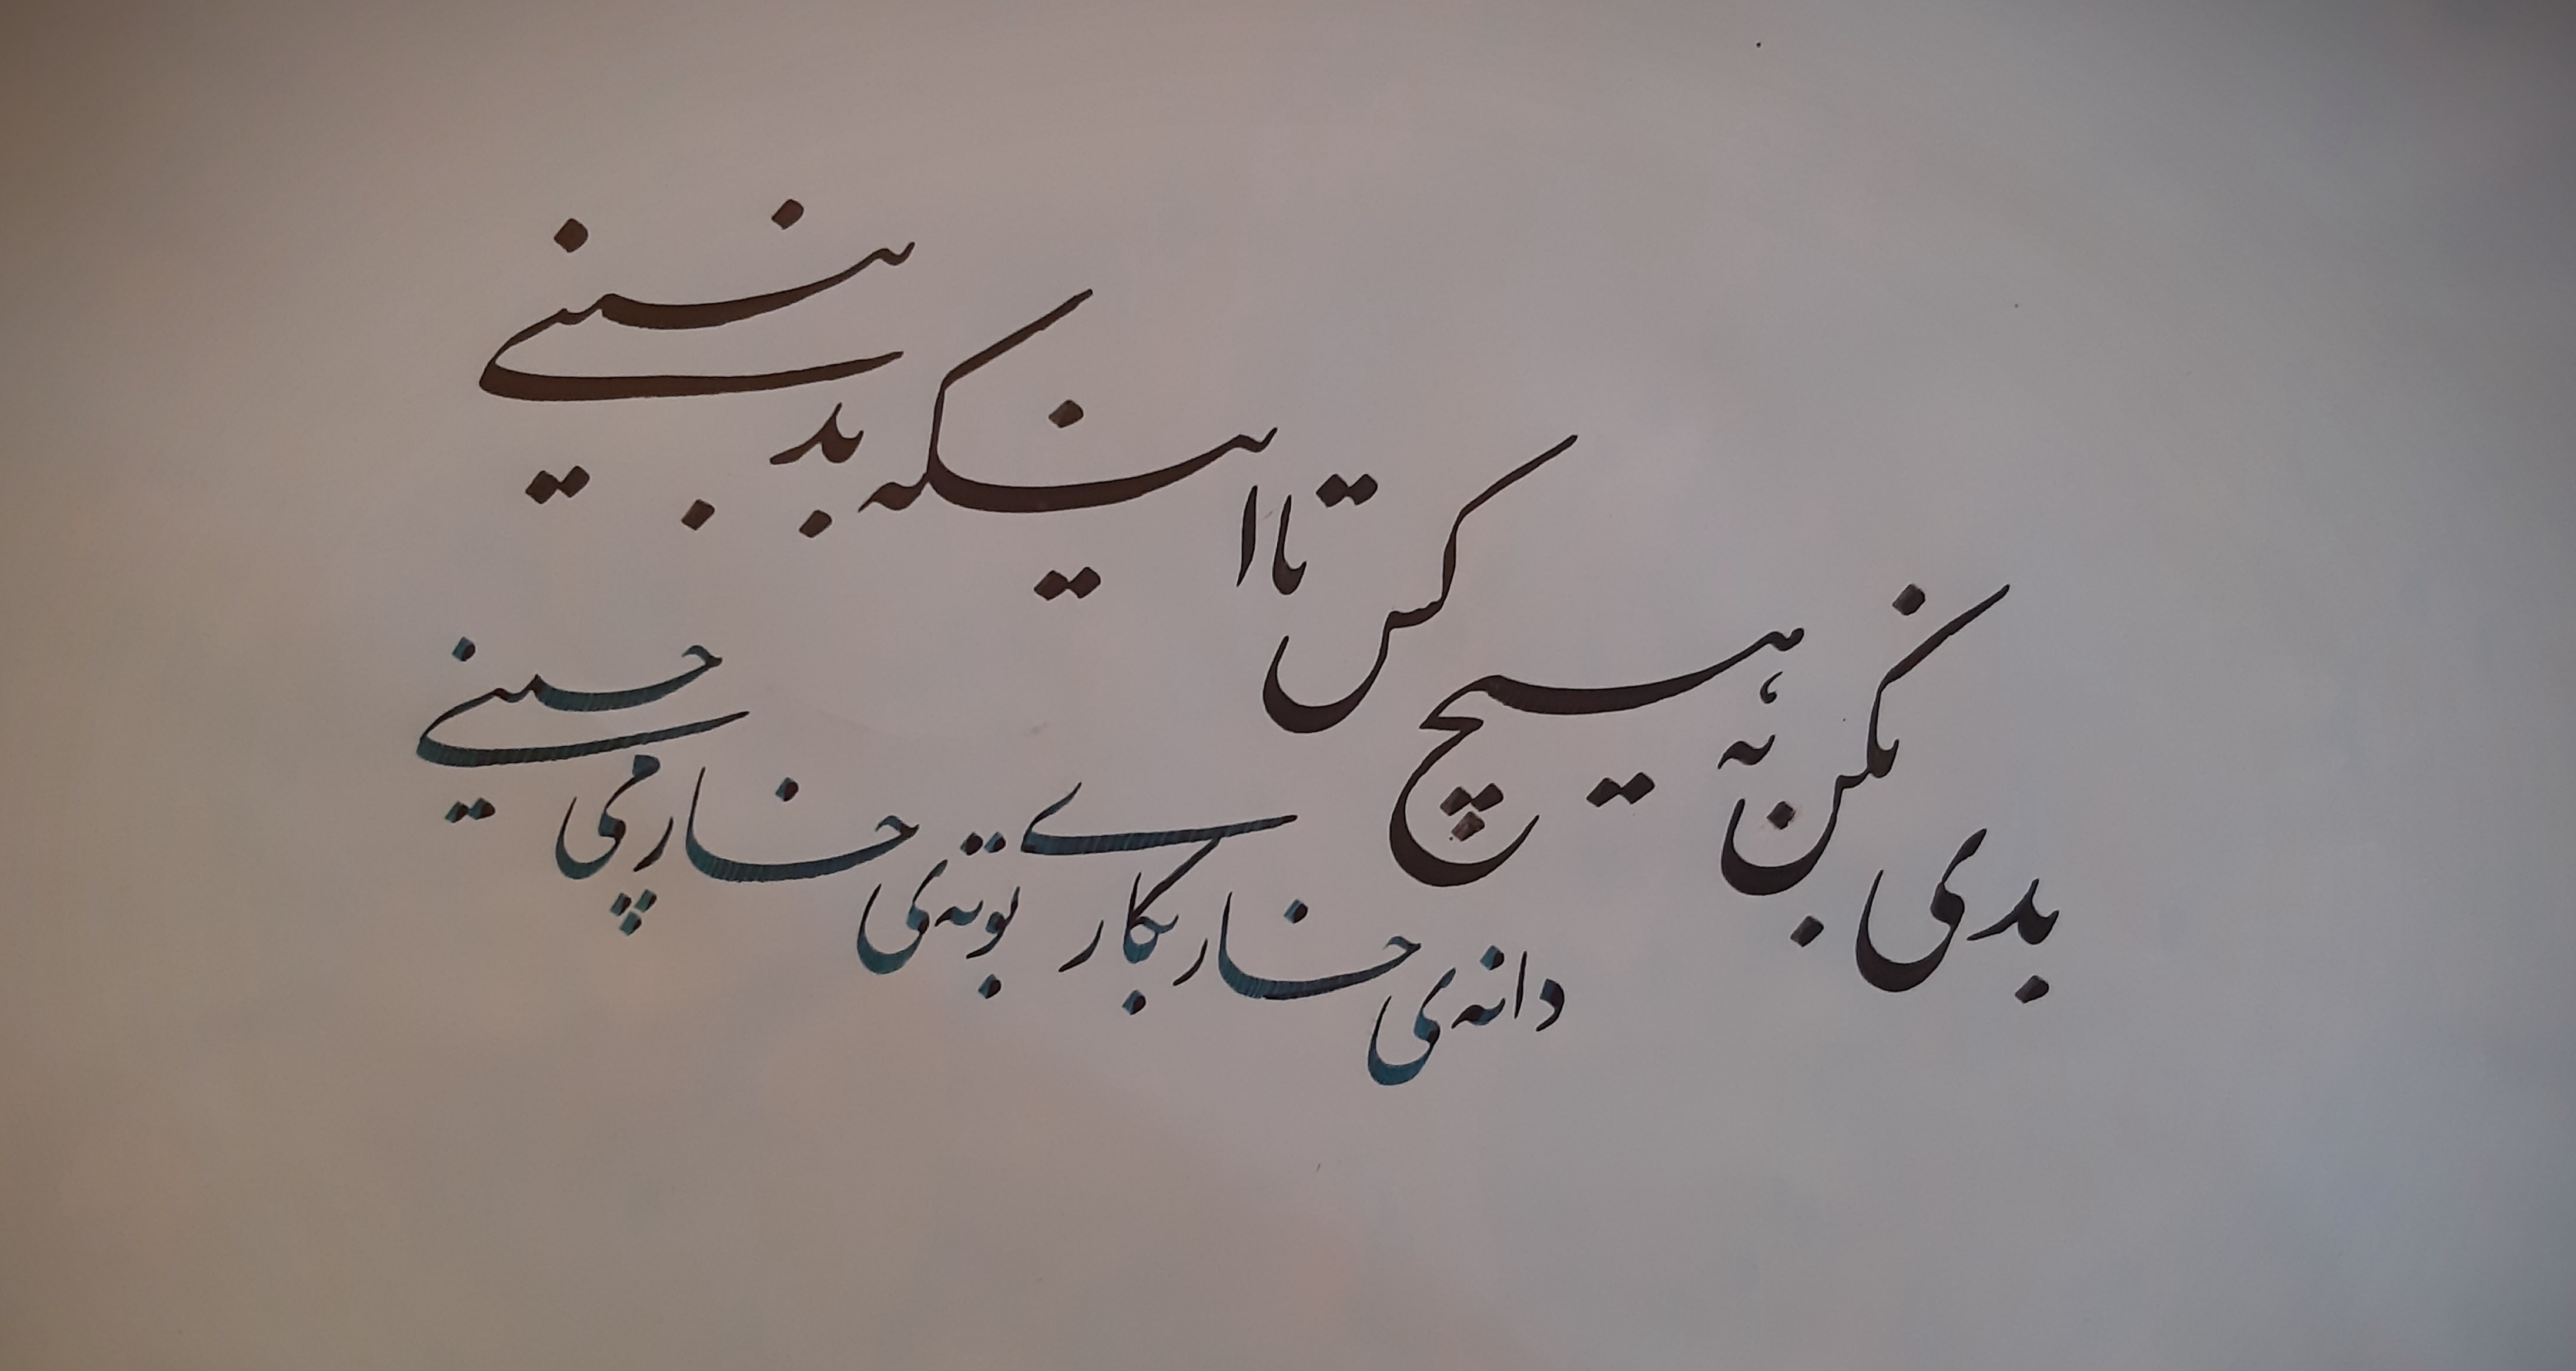 بدی نکن به هیچ کس تا اینکه بد نبینی
دانه‌ی خار بکاری بوته‌ی خار می چینی